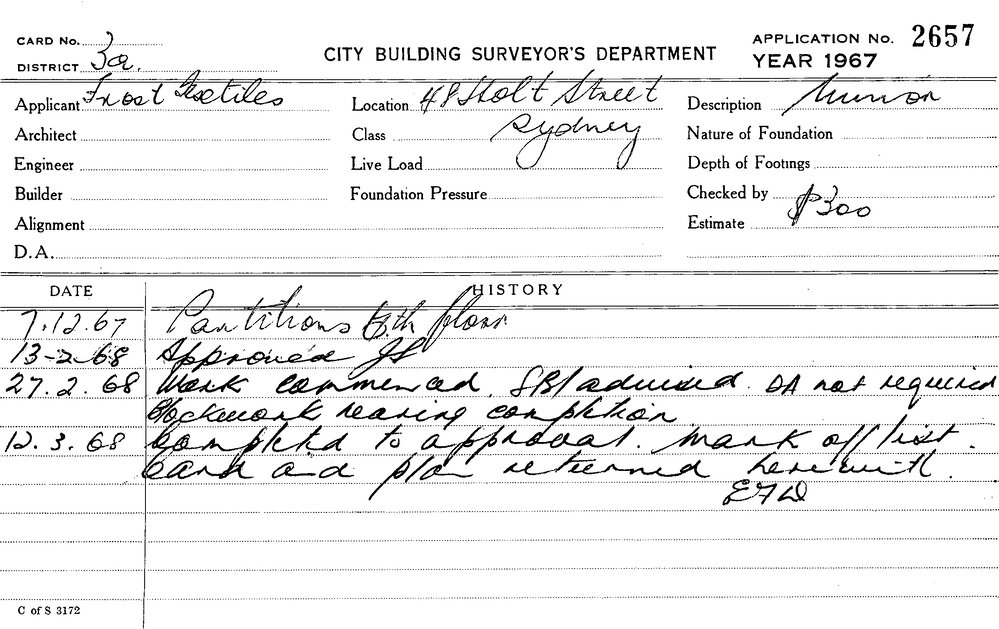 CARD No. 3
DISTRICT 3a.
CITY BUILDING SURVEYOR'S DEPARTMENT
APPLICATION No. 2657
YEAR 1967
Applicant Frost Textiles
Location 48 Holt Street
Description Minor
Architect
Class Sydney
Nature of Foundation
Engineer
Live Load
Depth of Footings
Builder
Foundation Pressure
Checked by
Alignment
Estimate $300
D.A.
DATE
HISTORY
7.12.67 Partitions 6th floor
13-2-68 Approved JS
27.2.68 Work commenced. SB/advised. DA not required
Blockwork nearing completion
12.3.68 Completed to approval. Mark off list.
Card and plan returned herewith.
C of S 3172